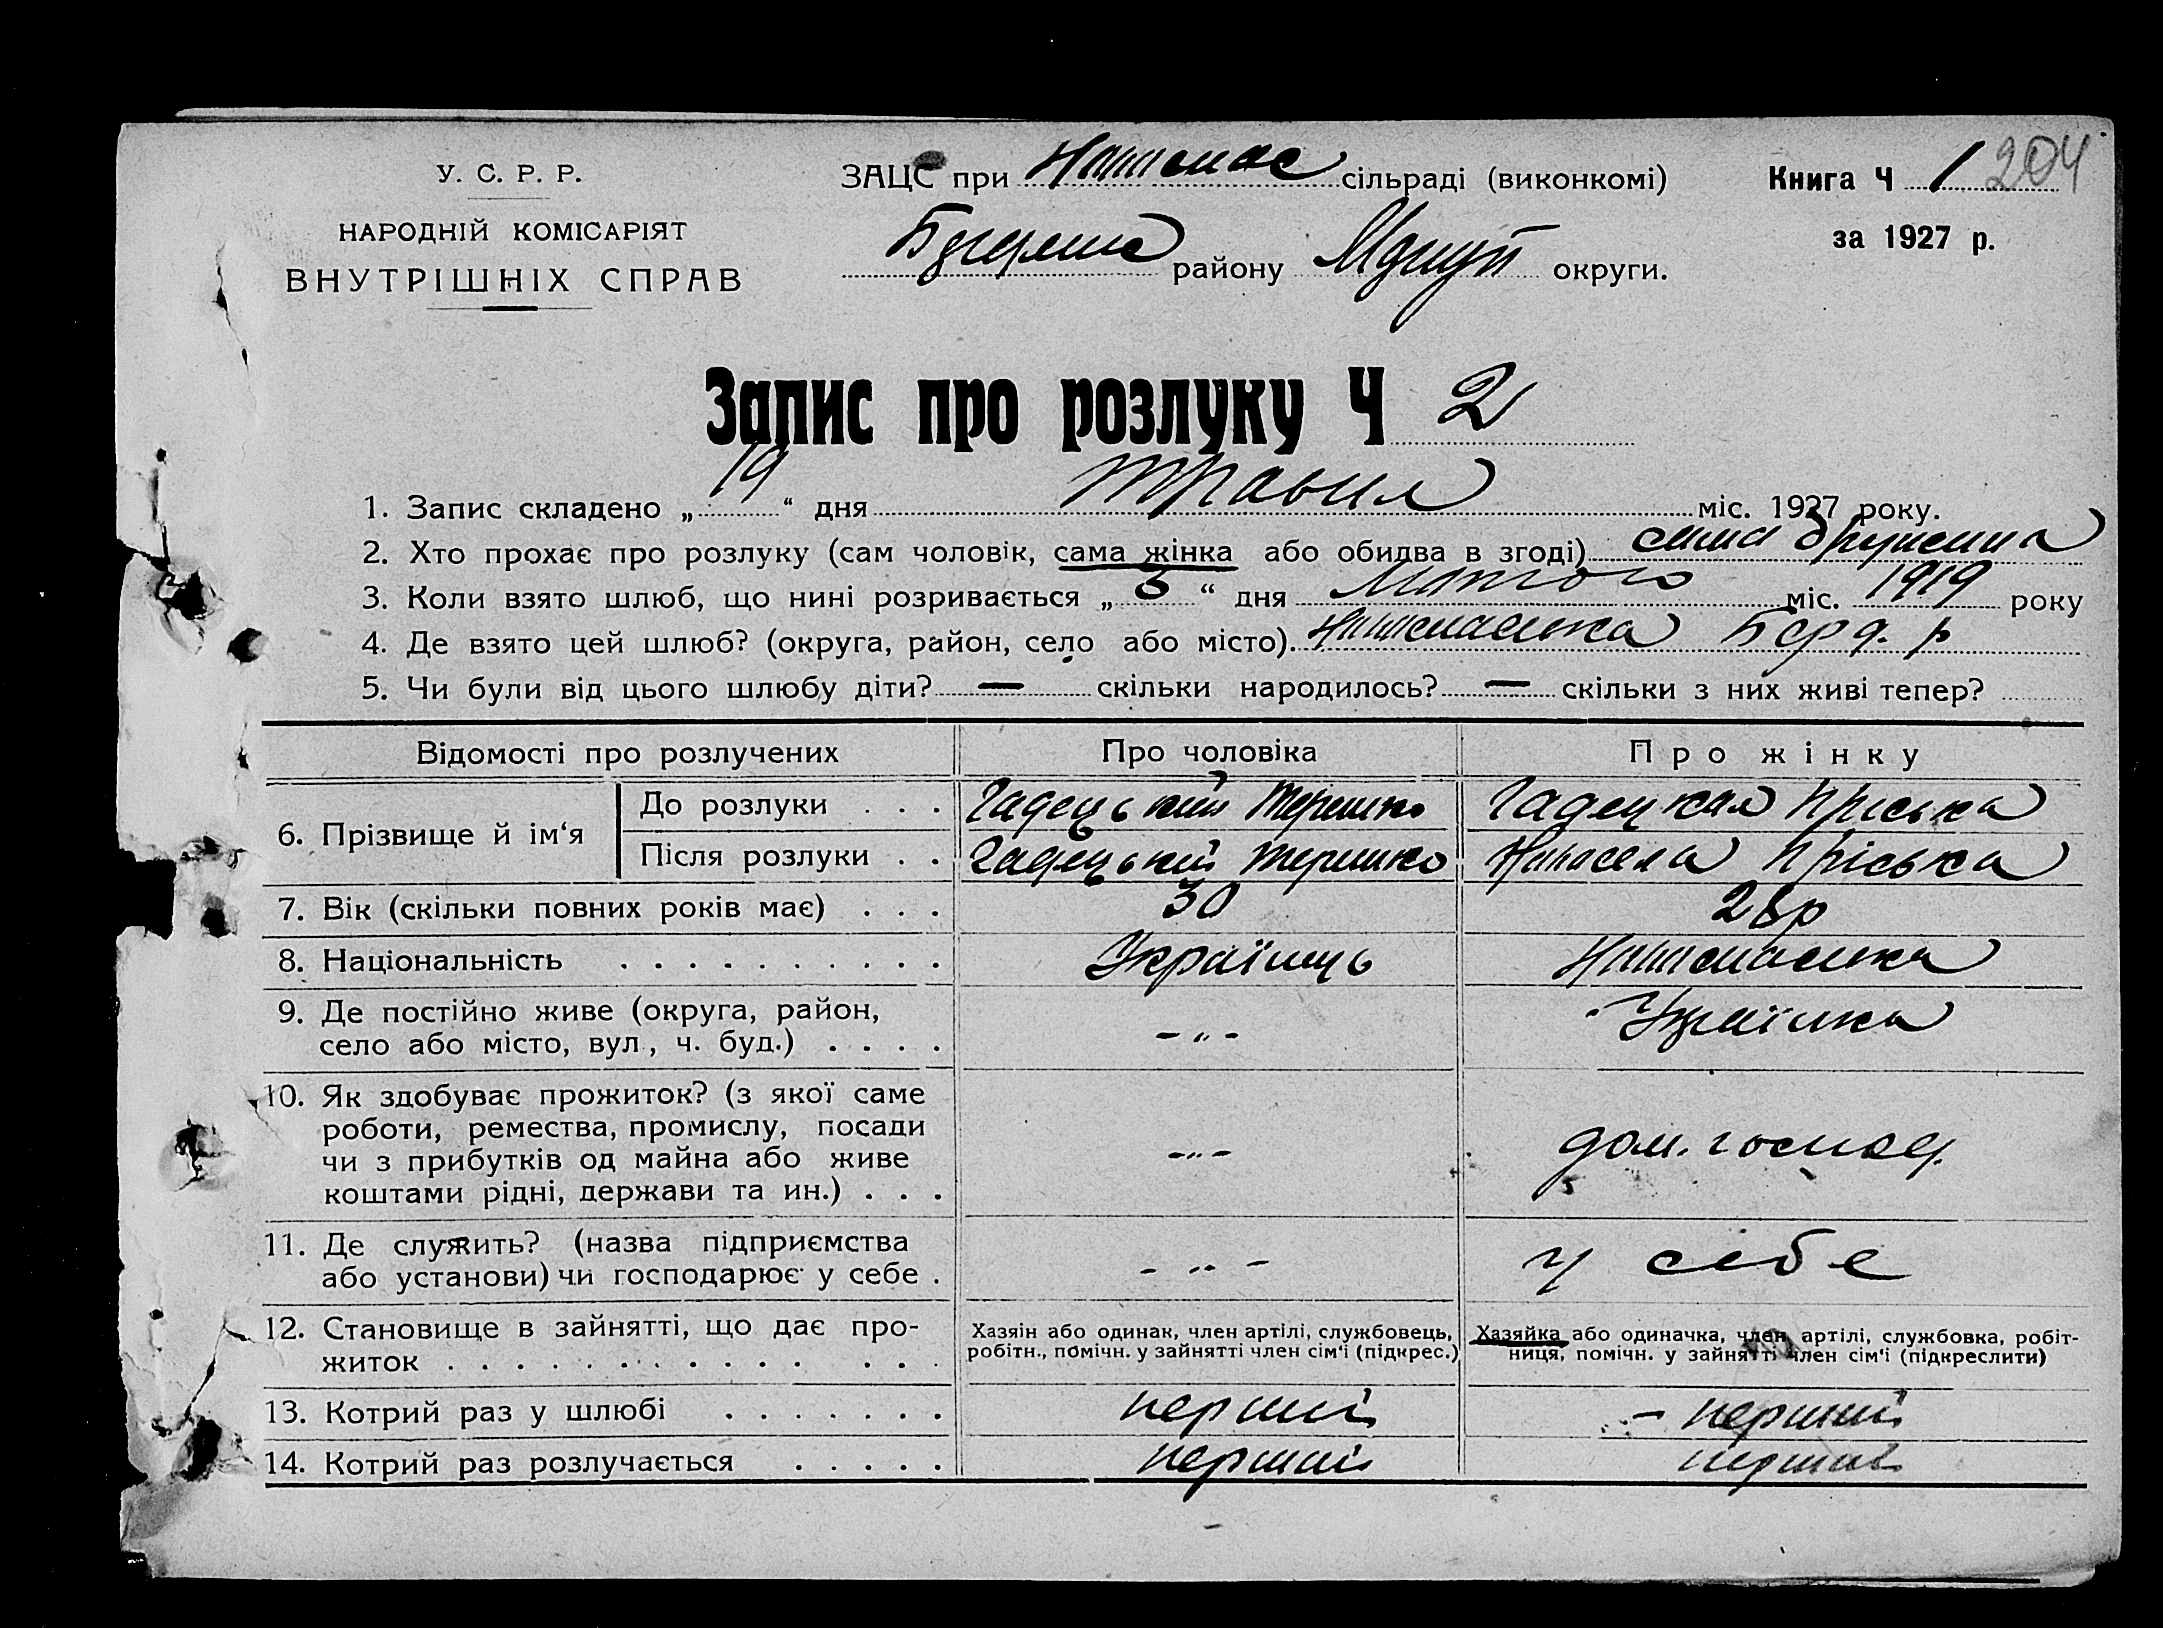 У. С. Р. Р.
НАРОДНІЙ КОМІСАРІЯТ
ВНУТРІШНІХ СПРАВ
ЗАЦС при сільраді (виконкомі)
району округи.
Книга Ч 1 204
за 1927 р.
Запис про розлуку Ч 2
1. Запис складено „ 19 “ дня травня міс. 1927 року.
2. Хто прохає про розлуку (сам чоловік, сама жінка або обидва в згоді) сама дружина
3. Коли взято шлюб, що нині розривається „ “ дня Лютого міс. 1919 року
4. Де взято цей шлюб? (округа, район, село або місто).
5. Чи були від цього шлюбу діти? — скільки народилось? — скільки з них живі тепер?
Відомості про розлучених Про чоловіка Про жінку
6. Прізвище й ім‘я
До розлуки . . . Гадецький Терешко Гадецкая Пріська
Після розлуки . . Гадецький Терешко Пріська
7. Вік (скільки повних років має) . . . 30 28 р
8. Національність . . . . . . . . . . . Українець
9. Де постійно живе (округа, район,
село або місто, вул., ч. буд.) . . . . - „ - Українка
10. Як здобуває прожиток? (з якої саме
роботи, ремества, промислу, посади
чи з прибутків од майна або живе
коштами рідні, держави та ин.) . . . - „ - дом. господ.
11. Де служить? (назва підприємства
або установи) чи господарює у себе . - „ - у себе
12. Становище в зайнятті, що дає про-
житок . . . . . . . . . . . . . . .
Хазяїн або одинак, член артілі, службовець,
робітн., помічн. у зайнятті член сім'ї (підкрес.)
Хазяйка або одиначка, член артілі, службовка, робіт-
ниця, помічн. у зайнятті член сім'ї (підкреслити)
13. Котрий раз у шлюбі . . . . . . . перший - перший
14. Котрий раз розлучається . . . . . перший перший